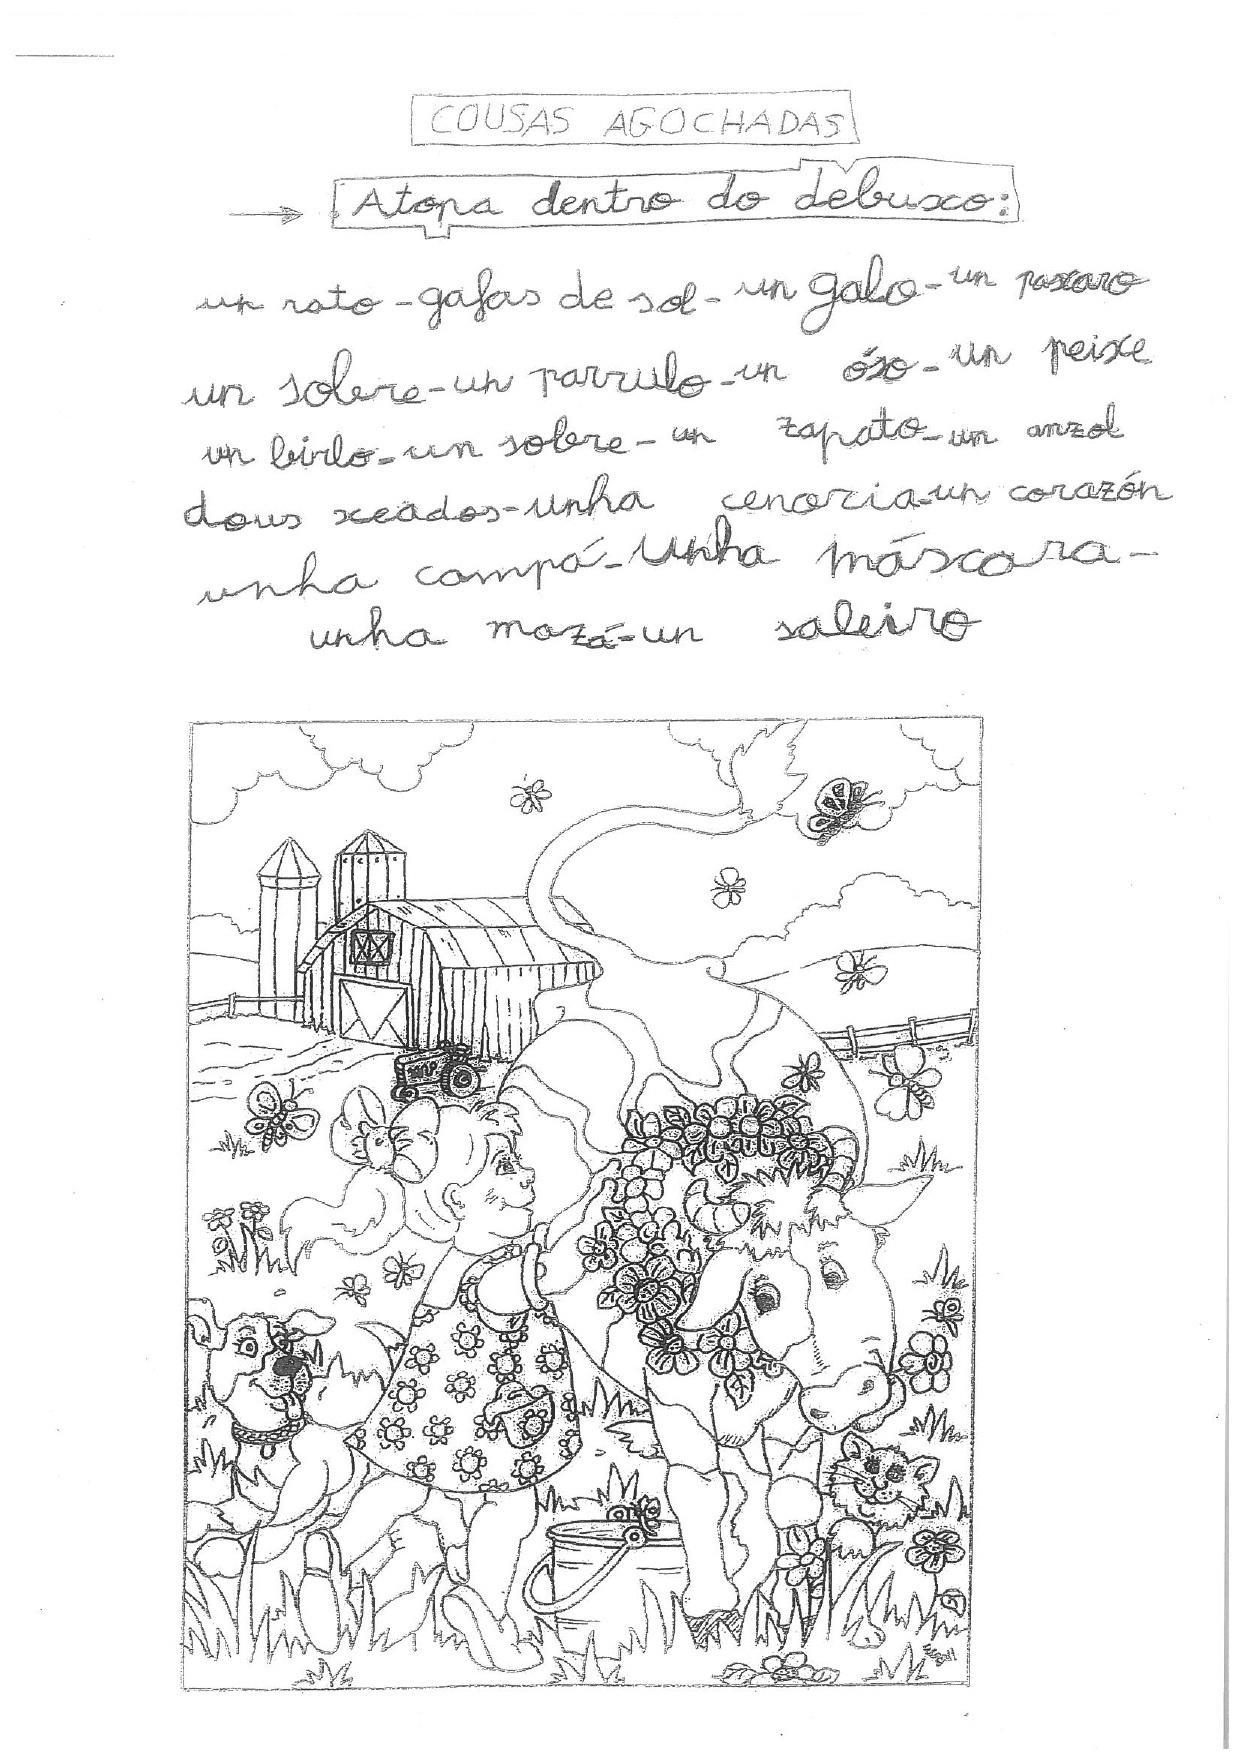 COUSAS AGOCHADAS
Atopa dentro do debuxo:
un rato - gafas de sol - un galo - un paxaro
un sobre - un parrulo - un óso - un peixe
un birlo - un sobre - un zapato - un anzol
dous xeados - unha cenoria - un corazón
unha campá - unha máscara -
unha mazá - un saleiro